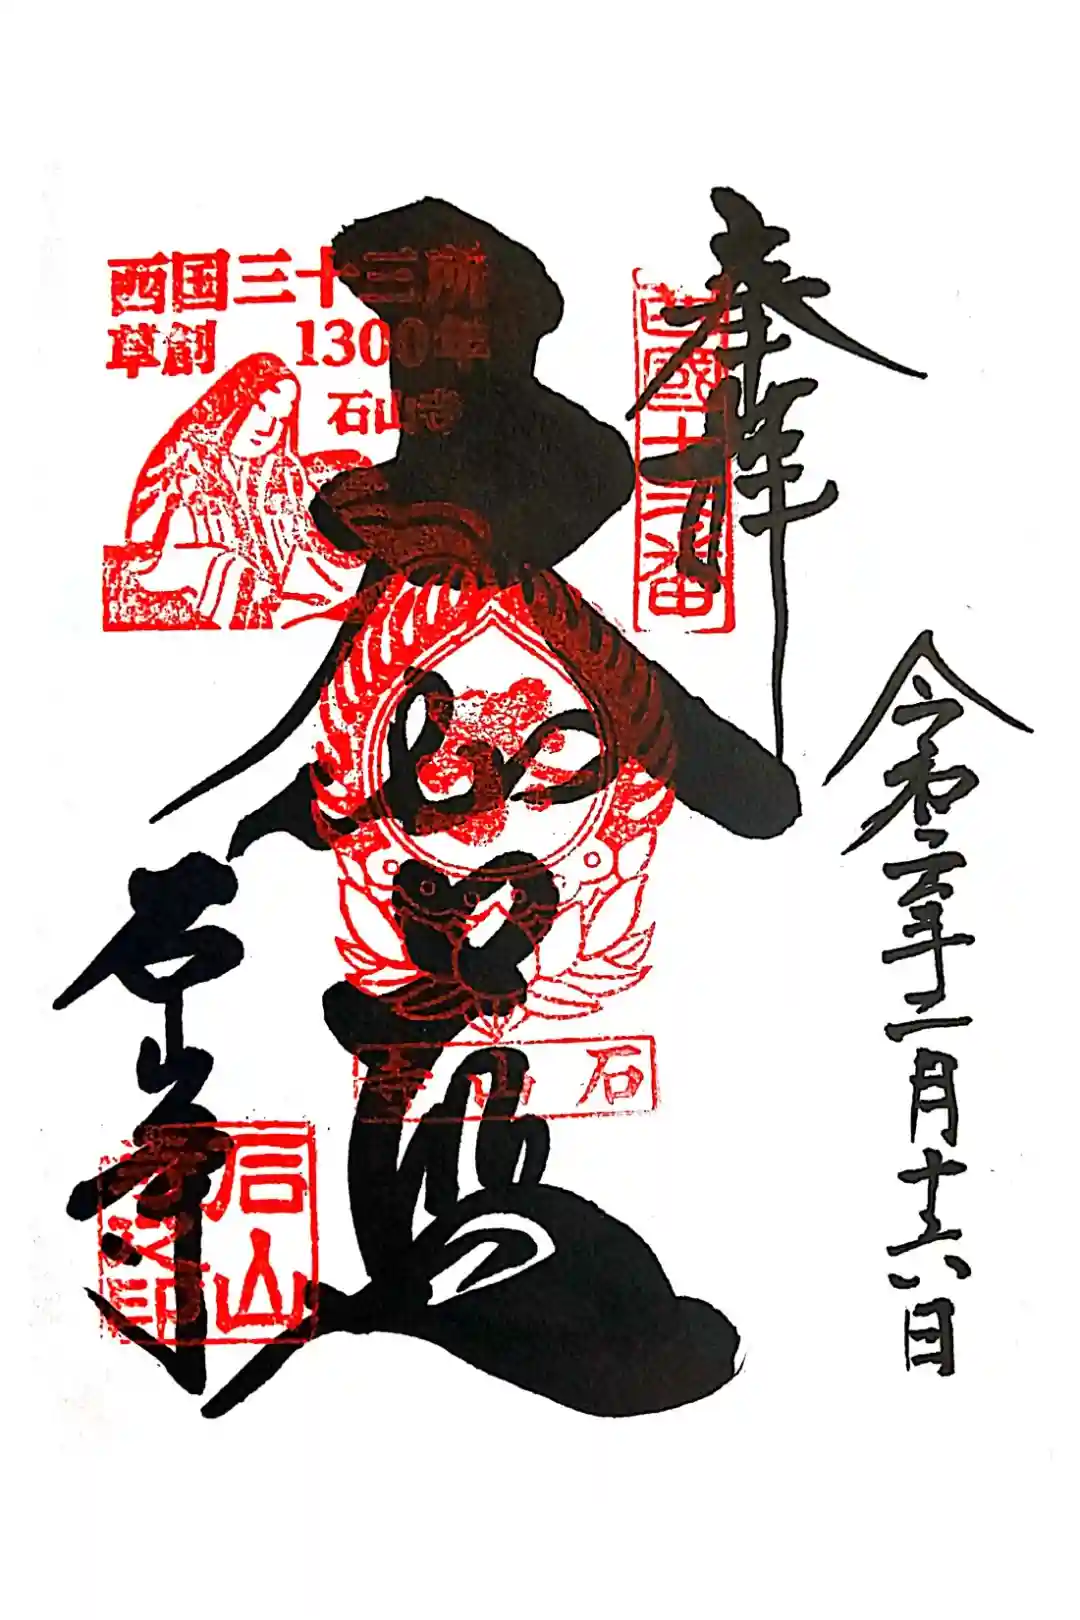 奉拝
西國十三番
令和二年二月十六日
西国三十三所
草創 1300年
石山寺
大伽藍
石山寺
石山寺
石山寺之印